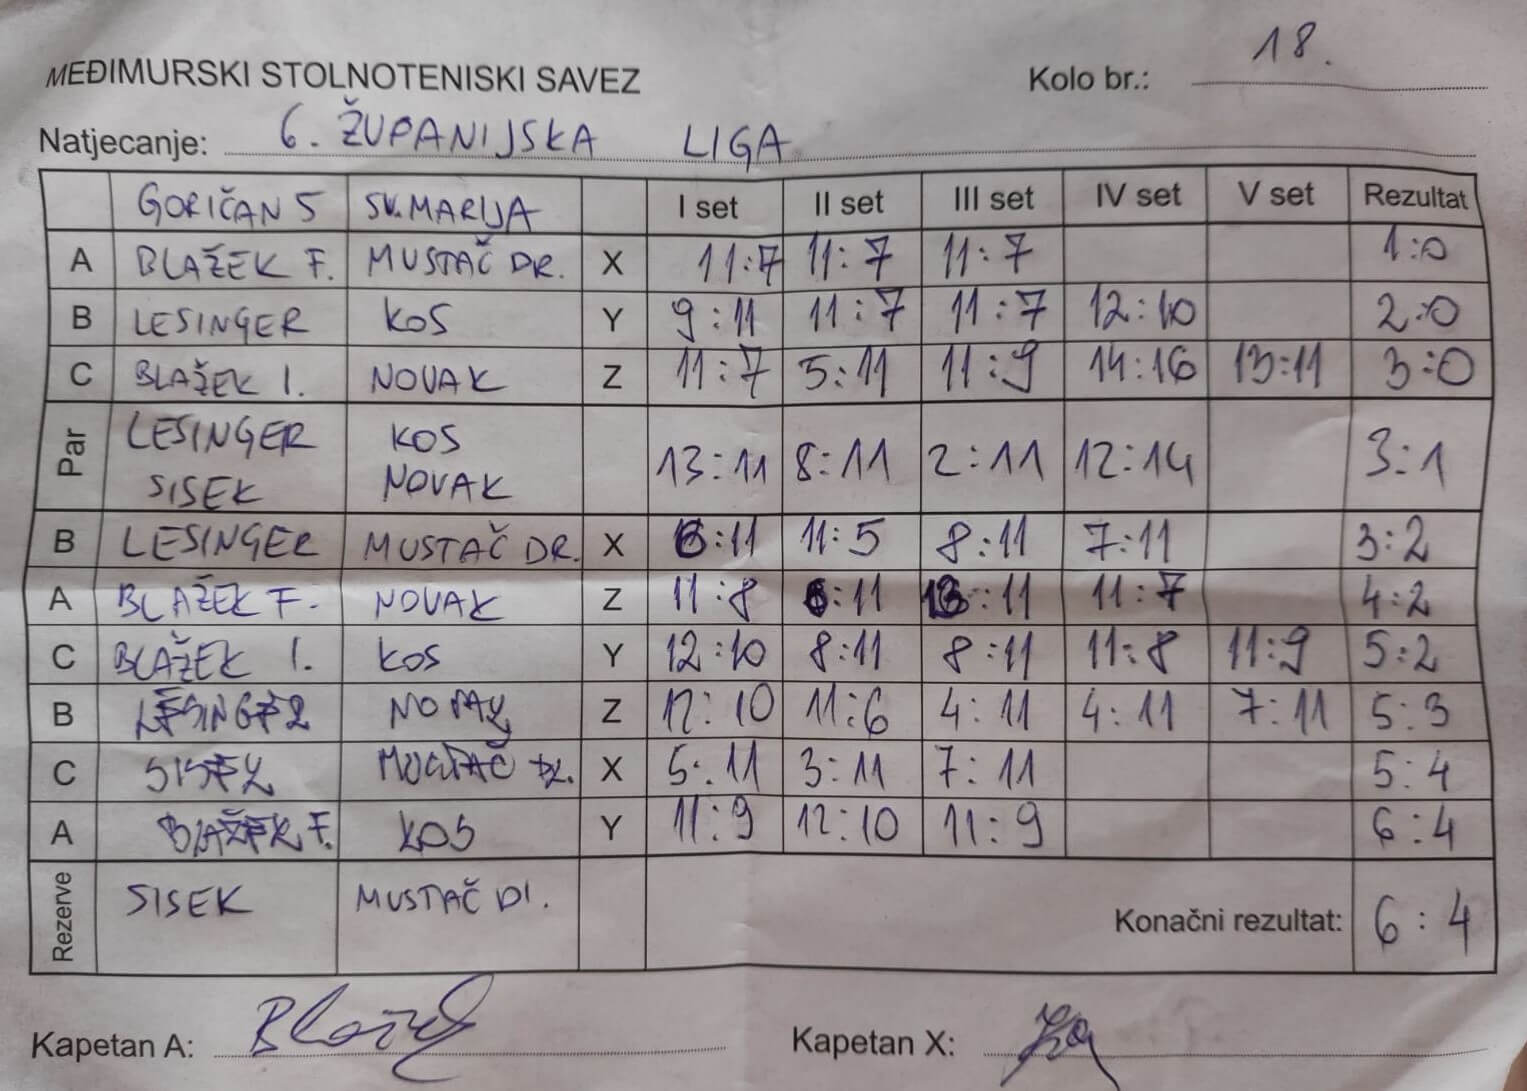 18.
MEĐIMURSKI STOLNOTENISKI SAVEZ Kolo br.:
Natjecanje: 6. ŽUPANIJSKA LIGA
GORIČAN 5 SV. MARIJA I set II set III set IV set V set Rezultat
A BLAŽEK F. MUSTAČ DR. X 11:7 11:7 11:7 1:0
B LESINGER KOS Y 9:11 11:7 11:7 12:10 2:0
C BLAŽEK I. NOVAK Z 11:7 5:11 11:9 14:16 13:11 3:0
Par LESINGER KOS
SISEK NOVAK 13:11 8:11 2:11 12:14 3:1
B LESINGER MUSTAČ DR. X 6:11 11:5 8:11 7:11 3:2
A BLAŽEK F. NOVAK Z 11:8 6:11 13:11 11:7 4:2
C BLAŽEK I. KOS Y 12:10 8:11 8:11 11:8 11:9 5:2
B LESINGER NOVAK Z 12:10 11:6 4:11 4:11 7:11 5:3
C SISEK MUSTAČ DR. X 5:11 3:11 7:11 5:4
A BLAŽEK F. KOS Y 11:9 12:10 11:9 6:4
Rezerve SISEK MUSTAČ DI. Konačni rezultat: 6:4
Kapetan A: Blažek Kapetan X: